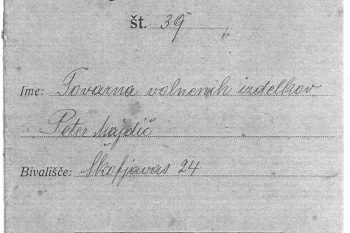 št. 39
Ime: Tovarna volnenih izdelkov
Peter Majdič
Bivališče: Škofjavas 24